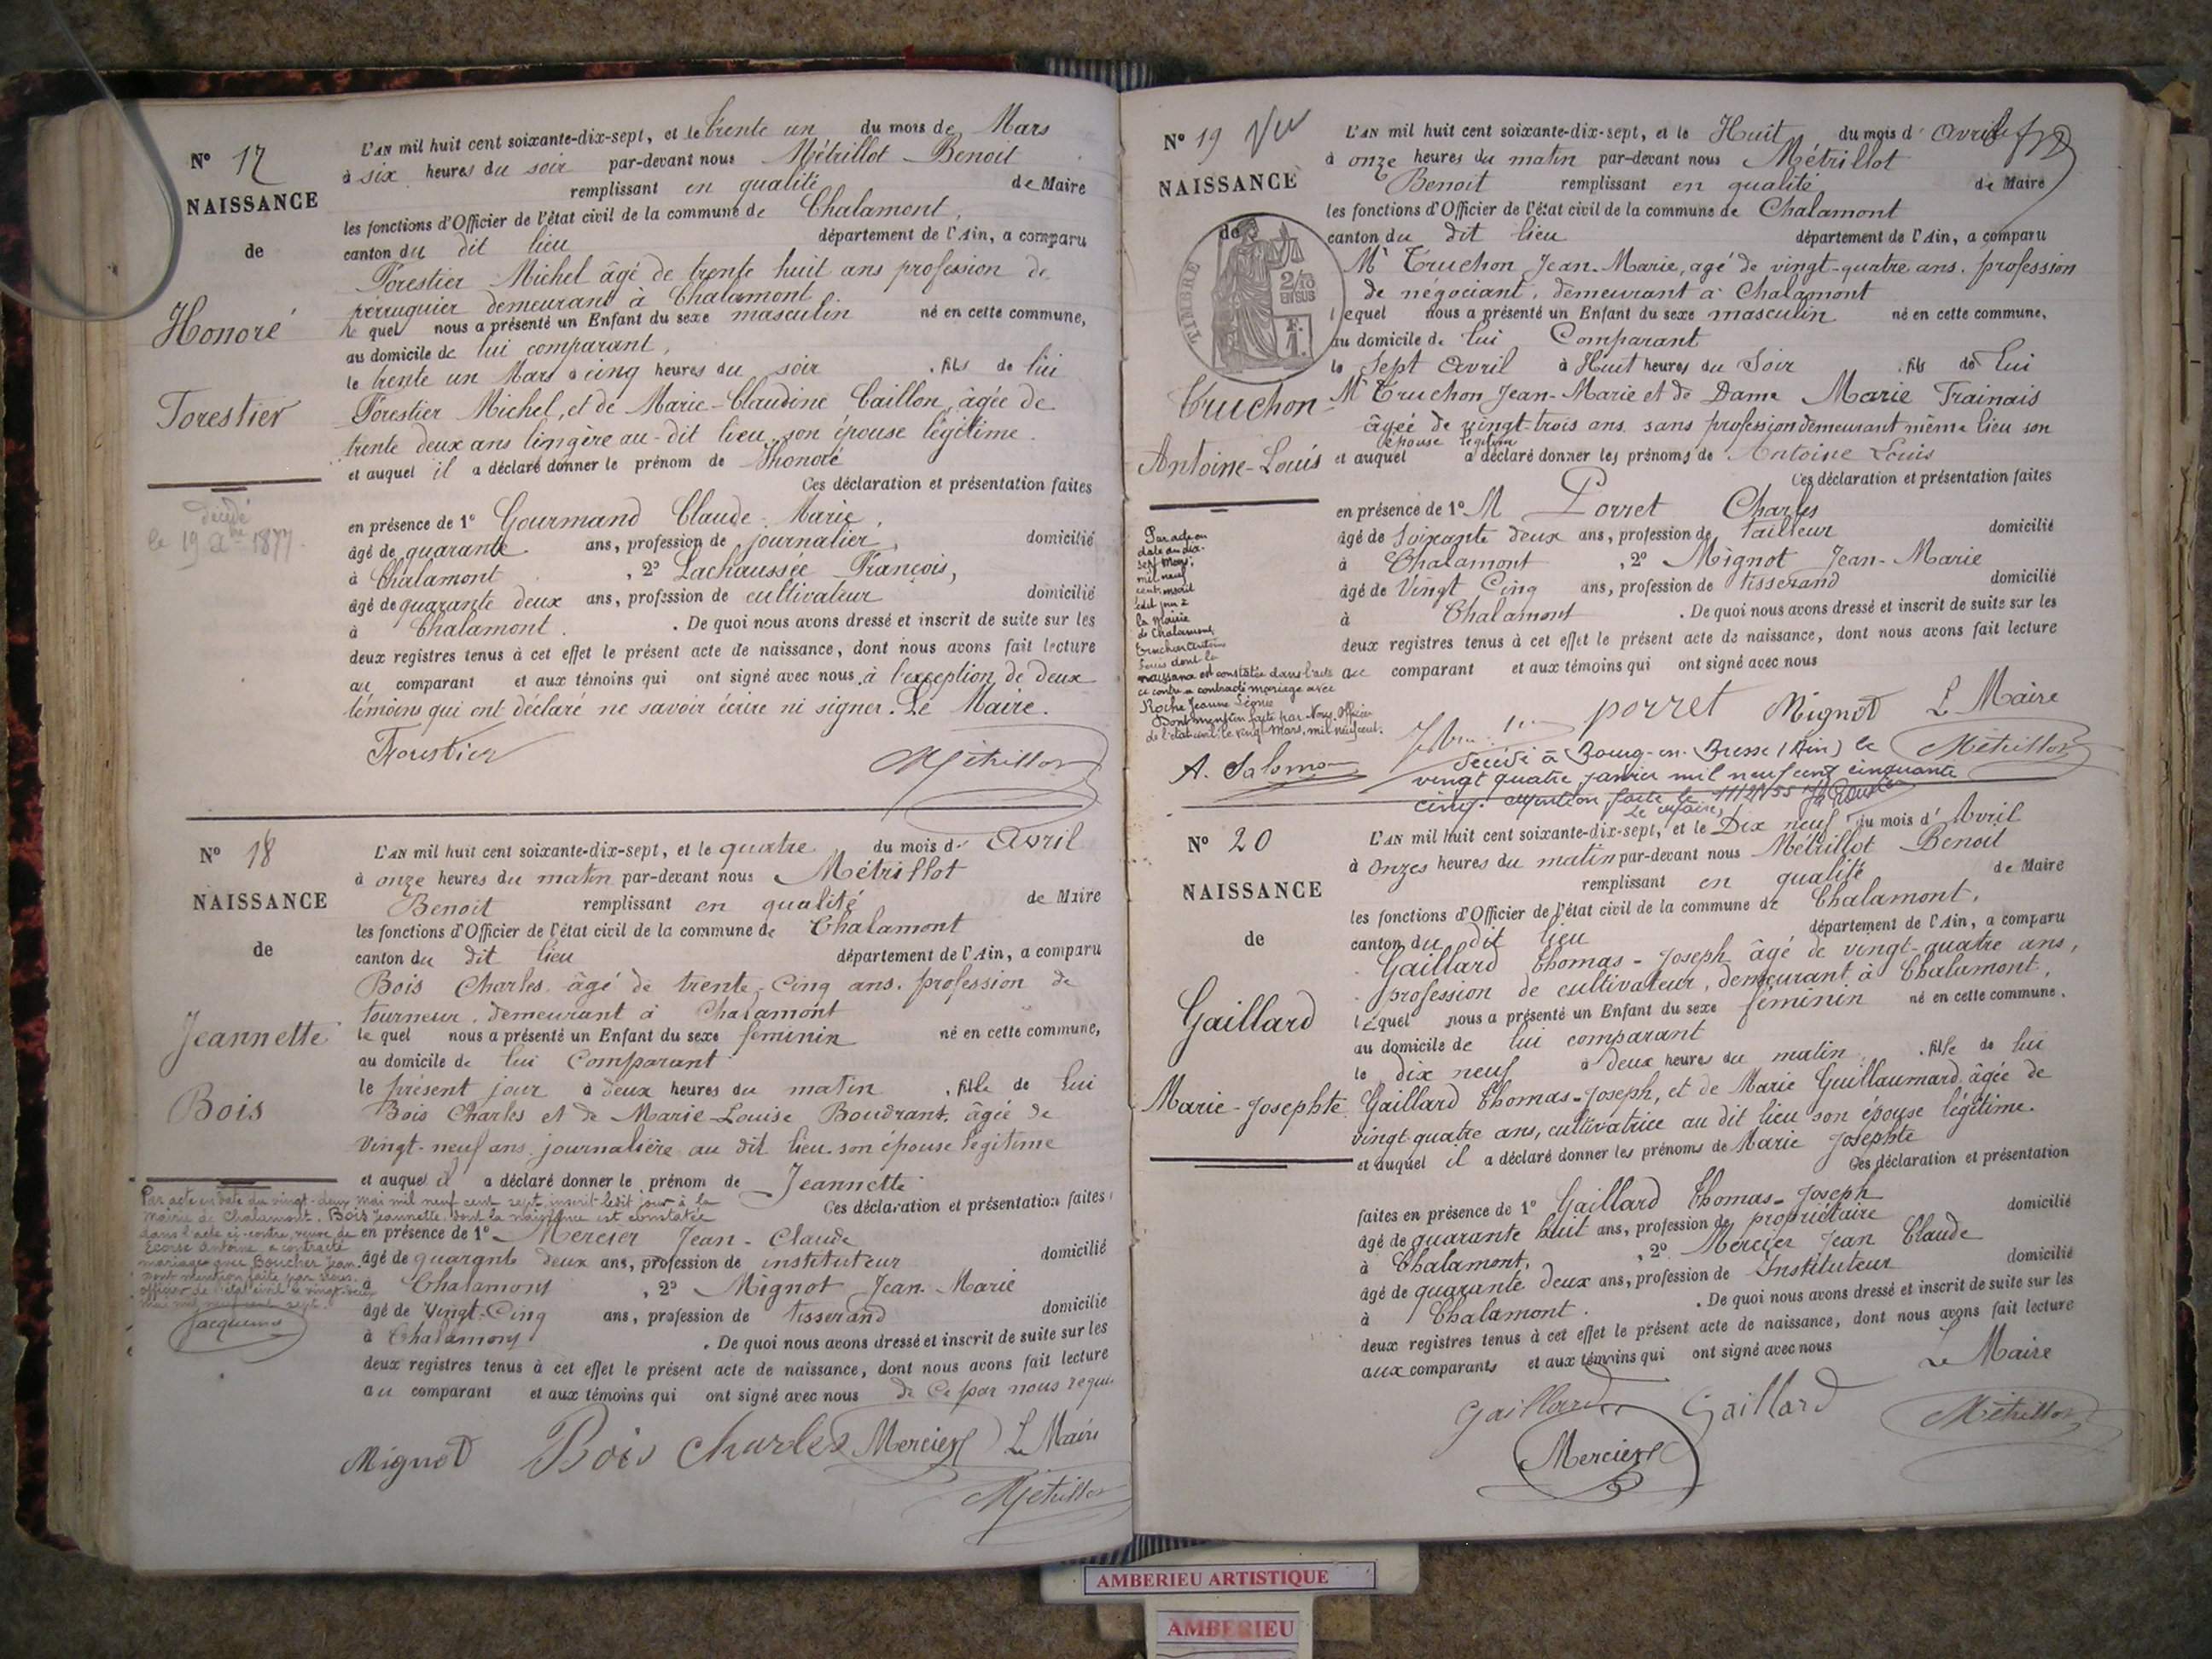 N° 17
NAISSANCE
de
Honoré
Forestier
décédé
le 19 1877.
L'AN mil huit cent soixante-dix-sept, et le trente un du mois de Mars
à six heures du soir par-devant nous Métrillot Benoit
remplissant en qualité de Maire
les fonctions d'Officier de l'état civil de la commune de Chalamont,
canton du dit lieu département de l'Ain, a comparu
Forestier Michel âgé de trente huit ans profession de
perruquier demeurant à Chalamont
le quel nous a présenté un Enfant du sexe masculin né en cette commune,
au domicile de lui comparant,
le trente un Mars à cinq heures du soir , fils de lui
Forestier Michel, et de Marie-Claudine Caillon, âgée de
trente deux ans lingère au-dit lieu, son épouse légitime.
et auquel il a déclaré donner le prénom de Honoré
Ces déclaration et présentation faites
en présence de 1° Gourmand Claude-Marie,
âgé de quarante ans, profession de journalier, domicilié
à Chalamont , 2° Lachaussée François,
âgé de quarante deux ans, profession de cultivateur domicilié
à Chalamont. . De quoi nous avons dressé et inscrit de suite sur les
deux registres tenus à cet effet le présent acte de naissance, dont nous avons fait lecture
au comparant et aux témoins qui ont signé avec nous, à l'exception de deux
témoins qui ont déclaré ne savoir écrire ni signer. Le Maire.
Forestier Métrillot
N° 18
NAISSANCE
de
Jeannette
Bois
Par acte en date du vingt-deux mai mil neuf cent sept inscrit ledit jour à la
Mairie de Chalamont, Bois Jeannette, dont la naissance est constatée
dans l'acte ci-contre, veuve de
Ecorse Antoine a contracté
mariage avec Boucher Jean.
dont mention faite par nous.
officier de l'état civil le vingt-deux
mai mil neuf cent sept.
Jacquemin
L'AN mil huit cent soixante-dix-sept, et le quatre du mois d' Avril
à onze heures du matin par-devant nous Métrillot
Benoit remplissant en qualité de Maire
les fonctions d'Officier de l'état civil de la commune de Chalamont
canton du dit lieu département de l'Ain, a comparu
Bois Charles âgé de trente-Cinq ans. profession de
tourneur, demeurant à Chalamont
le quel nous a présenté un Enfant du sexe féminin né en cette commune,
au domicile de lui Comparant
le présent jour à deux heures du matin , fille de Lui
Bois Charles et de Marie-Louise Boudrant, âgée de
Vingt-neuf ans journalière au dit lieu son épouse légitime
et auquel il a déclaré donner le prénom de Jeannette
Ces déclaration et présentation faites
en présence de 1° Mercier Jean-Claude
âgé de quarante deux ans, profession de instituteur domicilié
à Chalamont , 2° Mignot Jean-Marie
âgé de Vingt-Cinq ans, profession de tisserand domicilié
à Chalamont . De quoi nous avons dressé et inscrit de suite sur les
deux registres tenus à cet effet le présent acte de naissance, dont nous avons fait lecture
au comparant et aux témoins qui ont signé avec nous de Ce par nous requis
Mignot Bois Charles Mercier Le Maire
Métrillot
N° 19 Vu
NAISSANCE
de
TIMBRE
2/10
EN SUS
Truchon
Antoine-Louis
Par acte en
date du dix-
sept Mars,
mil neuf
cent, inscrit
ledit jour à
la Mairie
de Chalamont,
Truchon Antoine
Louis dont la
naissance est constatée dans l'acte
ci contre a contracté mariage avec
Roche Jeanne Léonie
Dont mention faite par Nous, Officier
de l'état civil le vingt Mars, mil neuf cent.
A. Salomon
L'AN mil huit cent soixante-dix-sept, et le Huit du mois d' Avril
à onze heures du matin par-devant nous Métrillot
Benoit remplissant en qualité de Maire
les fonctions d'Officier de l'état civil de la commune de Chalamont
canton du dit lieu département de l'Ain, a comparu
Mr Truchon Jean-Marie, agé de vingt-quatre ans. profession
de négociant, demeurant à Chalamont
lequel nous a présenté un Enfant du sexe masculin né en cette commune,
au domicile de lui Comparant
le Sept Avril à Huit heures du Soir , fils de Lui
Mr Truchon Jean-Marie et de Dame Marie Trainais
âgée de vingt-trois ans sans profession demeurant même lieu son
épouse légitime
et auquel a déclaré donner les prénoms de Antoine Louis
Ces déclaration et présentation faites
en présence de 1° M Porret Charles
âgé de Soixante deux ans, profession de tailleur domicilié
à Chalamont , 2° Mignot Jean-Marie
âgé de Vingt Cinq ans, profession de tisserand domicilié
à Chalamont . De quoi nous avons dressé et inscrit de suite sur les
deux registres tenus à cet effet le présent acte de naissance, dont nous avons fait lecture
au comparant et aux témoins qui ont signé avec nous
porret Mignot L Maire
Métrillot
Décédé à Bourg-en-Bresse (Ain) le
vingt quatre janvier mil neuf cent cinquante
cinq. Mention faite le
Le Maire,
N° 20
NAISSANCE
de
Gaillard
Marie-Josephte
L'AN mil huit cent soixante-dix-sept, et le Dix neuf du mois d' Avril
à onzes heures du matin par-devant nous Métrillot Benoit
remplissant en qualité de Maire
les fonctions d'Officier de l'état civil de la commune de Chalamont,
canton du dit lieu département de l'Ain, a comparu
Gaillard Thomas-Joseph âgé de vingt-quatre ans,
profession de cultivateur, demeurant à Chalamont,
lequel nous a présenté un Enfant du sexe féminin né en cette commune,
au domicile de lui comparant
le dix neuf à deux heures du matin , fille de lui
Gaillard Thomas-Joseph, et de Marie Guillaumard âgée de
vingt quatre ans, cultivatrice au dit lieu son épouse légitime.
et auquel il a déclaré donner les prénoms de Marie Josephte
Ces déclaration et présentation
faites en présence de 1° Gaillard Thomas-Joseph
âgé de quarante huit ans, profession de propriétaire domicilié
à Chalamont, , 2° Mercier Jean Claude
âgé de quarante deux ans, profession de Instituteur domicilié
à Chalamont. . De quoi nous avons dressé et inscrit de suite sur les
deux registres tenus à cet effet le présent acte de naissance, dont nous avons fait lecture
aux comparants et aux témoins qui ont signé avec nous Le Maire
Gaillard Gaillard Métrillot
Mercier
AMBERIEU ARTISTIQUE
AMBERIEU